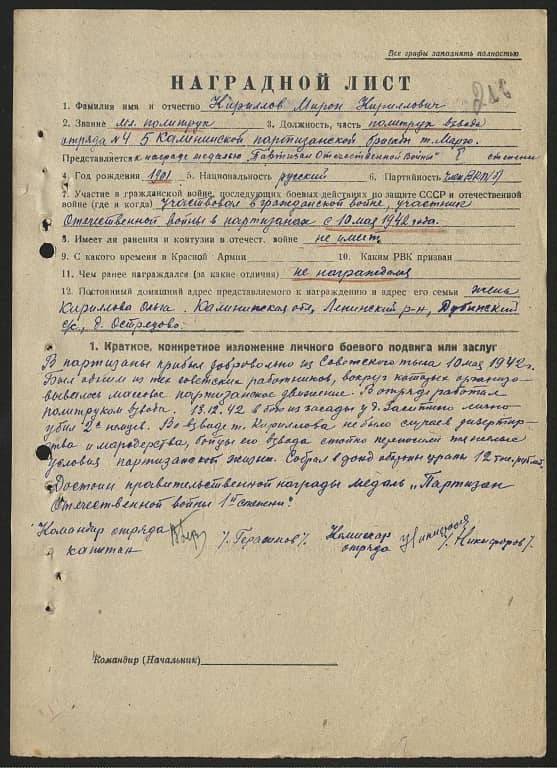 Все графы заполнять полностью
НАГРАДНОЙ ЛИСТ
1. Фамилия имя и отчество Кириллов Мирон Кириллович
2. Звание мл. политрук 3. Должность, часть политрук взвода
отряда №4 5 Калининской партизанской бригады т. Марго.
Представляется к награде медалью "Партизан Отечественной Войны" I степени
4. Год рождения 1901 5. Национальность русский 6. Партийность член ВКП/б/
7. Участие в гражданской войне, последующих боевых действиях по защите СССР и отечественной
войне (где и когда) Участвовал в гражданской войне, участник
Отечественной войны в партизанах с 10 мая 1942 года.
8. Имеет ли ранения и контузии в отечест. войне не имеет
9. С какого времени в Красной Армии 10. Каким РВК призван
11. Чем ранее награждался (за какие отличия) не награждался
12. Постоянный домашний адрес представляемого к награждению и адрес его семьи жена
Кириллова Ольга. Калининская обл, Ленинский р-н, Дубинский
с/с, д. Остредово.
1. Краткое, конкретное изложение личного боевого подвига или заслуг
В партизаны прибыл добровольно из Советского тыла 10 мая 1942 г.
Был одним из тех советских работников, вокруг которых организо-
вывалось массовое партизанское движение. В отряде работал
политруком взвода. 13.12.42 в бою из засады у д. лично
убил 2х немцев. Во взводе т. Кириллова не было случаев дизертир-
ства и мародерства, бойцы его взвода стойко переносили тяжелые
условия партизанской жизни. Собрал в фонд обороны страны 12 тыс. рублей.
Достоин правительственной награды медаль "Партизан
Отечественной войны 1й степени".
Командир отряда Комиссар
капитан /Герасимов/. отряда /Никифоров/.
Командир (Начальник)